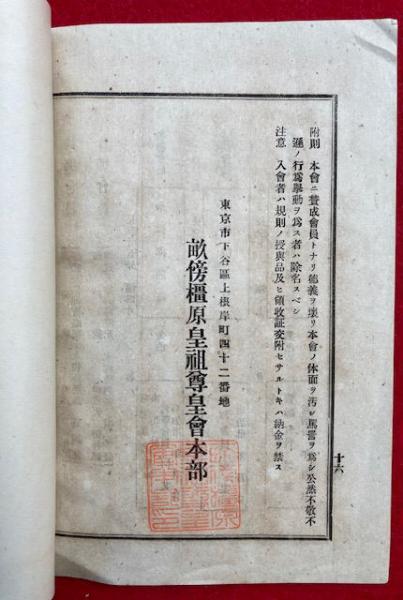 附則 本會ニ賛成會員トナリ德義ヲ壞リ本會ノ体面ヲ汚シ罵詈ヲ爲シ公然不敬不
遜ノ行爲擧動ヲ爲ス者ハ除名スベシ
注意 入會者ハ規則ノ授與品及ヒ領收証交附セサルトキハ納金ヲ禁ス
東京市下谷區上根岸町四十二番地
畝傍橿原皇祖尊皇會本部
十六